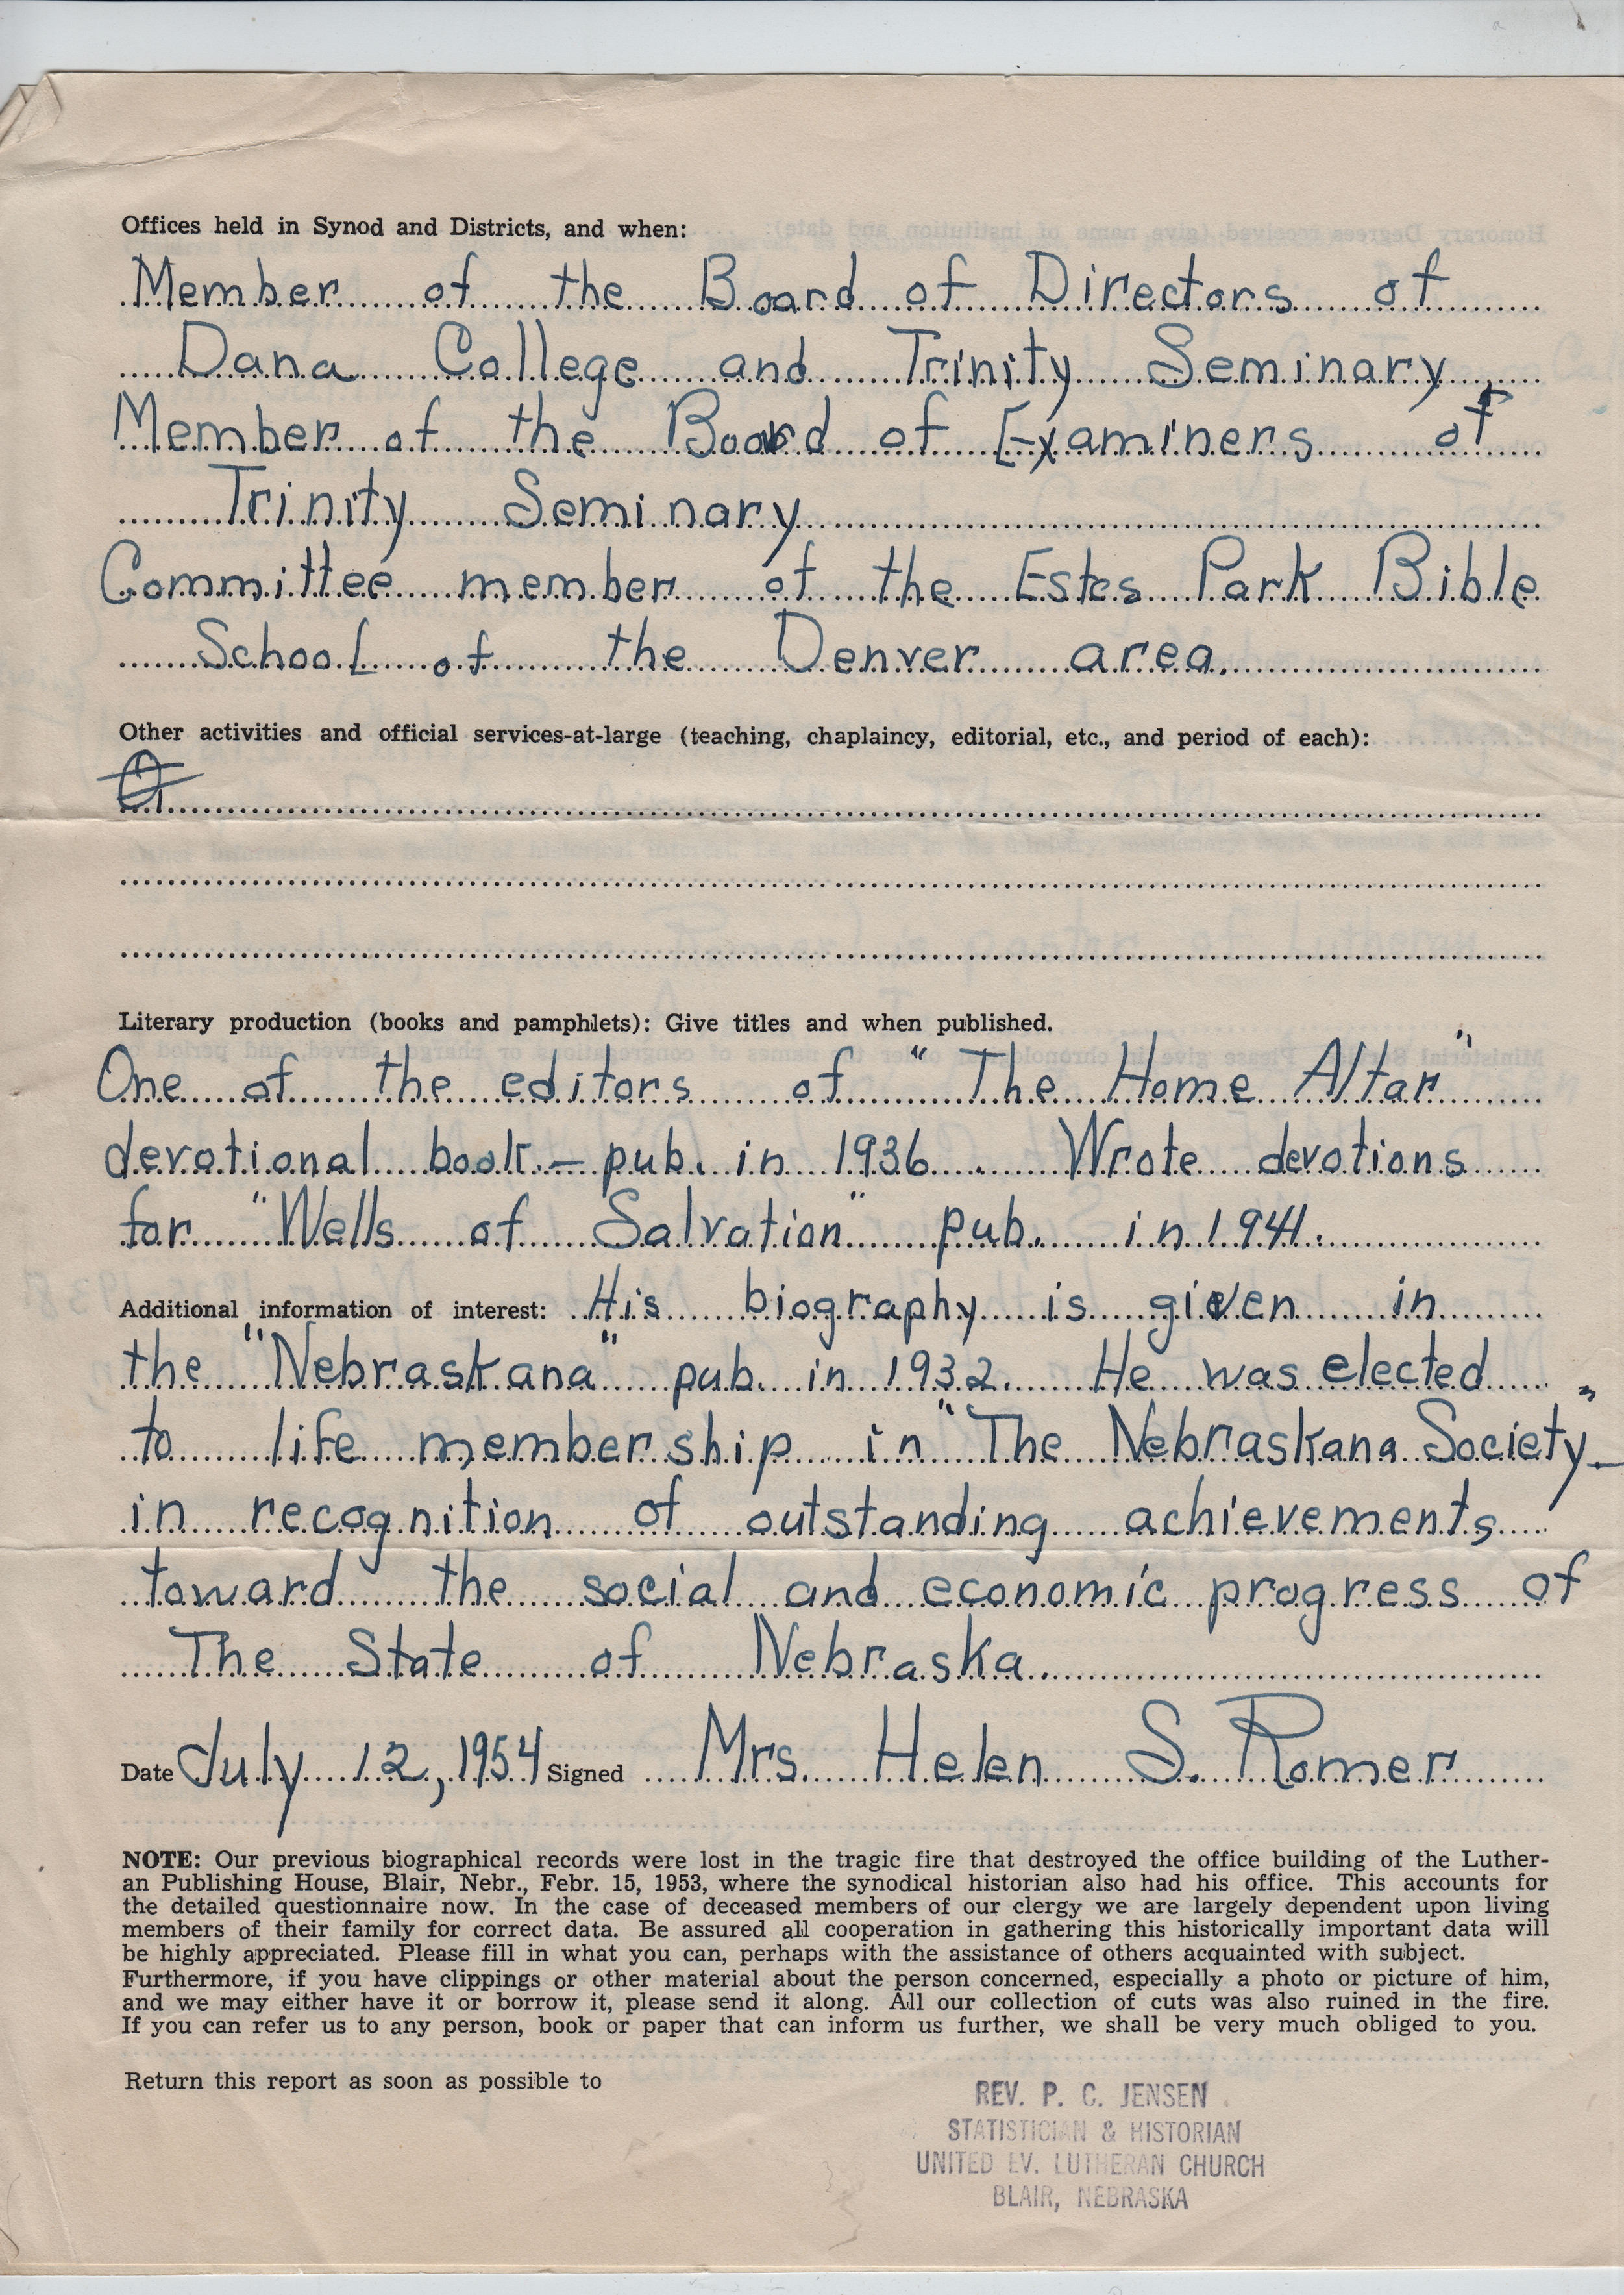 Offices held in Synod and Districts, and when:
Member of the Board of Directors of
Dana College and Trinity Seminary,
Member of the Board of Examiners of
Trinity Seminary
Committee member of the Estes Park Bible
School of the Denver area.
Other activities and official services-at-large (teaching, chaplaincy, editorial, etc., and period of each):
Literary production (books and pamphlets): Give titles and when published.
One of the editors of "The Home Altar"
devotional book — pub. in 1936. Wrote devotions
for "Wells of Salvation" pub. in 1941.
Additional information of interest: His biography is given in
the "Nebraskana" pub. in 1932. He was elected
to life membership in "The Nebraskana Society" –
in recognition of outstanding achievements
toward the social and economic progress of
The State of Nebraska.
Date July 12, 1954 Signed Mrs. Helen S. Romer
NOTE: Our previous biographical records were lost in the tragic fire that destroyed the office building of the Luther-
an Publishing House, Blair, Nebr., Febr. 15, 1953, where the synodical historian also had his office. This accounts for
the detailed questionnaire now. In the case of deceased members of our clergy we are largely dependent upon living
members of their family for correct data. Be assured all cooperation in gathering this historically important data will
be highly appreciated. Please fill in what you can, perhaps with the assistance of others acquainted with subject.
Furthermore, if you have clippings or other material about the person concerned, especially a photo or picture of him,
and we may either have it or borrow it, please send it along. All our collection of cuts was also ruined in the fire.
If you can refer us to any person, book or paper that can inform us further, we shall be very much obliged to you.
Return this report as soon as possible to
REV. P. C. JENSEN
STATISTICIAN & HISTORIAN
UNITED EV. LUTHERAN CHURCH
BLAIR, NEBRASKA